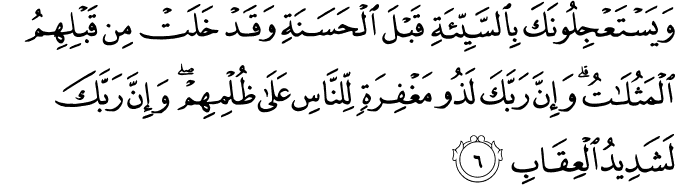 وَيَسْتَعْجِلُونَكَ بِٱلسَّيِّئَةِ قَبْلَ ٱلْحَسَنَةِ وَقَدْ خَلَتْ مِن قَبْلِهِمُ
ٱلْمَثُلَـٰتُ ۗ وَإِنَّ رَبَّكَ لَذُو مَغْفِرَةٍ لِّلنَّاسِ عَلَىٰ ظُلْمِهِمْ ۖ وَإِنَّ رَبَّكَ
لَشَدِيدُ ٱلْعِقَابِ ٦